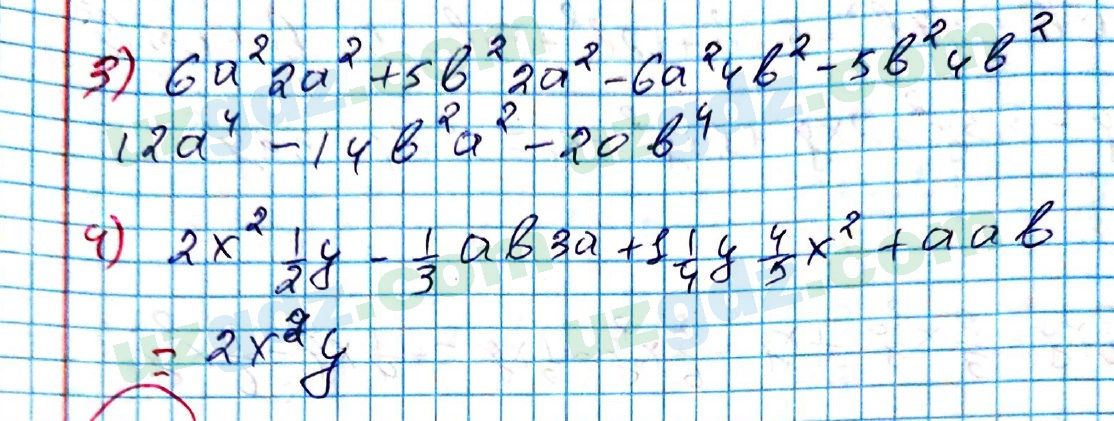 3) 6a²2a² + 5b²2a² - 6a²4b² - 5b²4b²
12a⁴ - 14b²a² - 20b⁴
4) 2x² 1/2 y - 1/3 ab3a + 1 1/4 y 4/5 x² + aab
= 2x²y
uzgdz.com